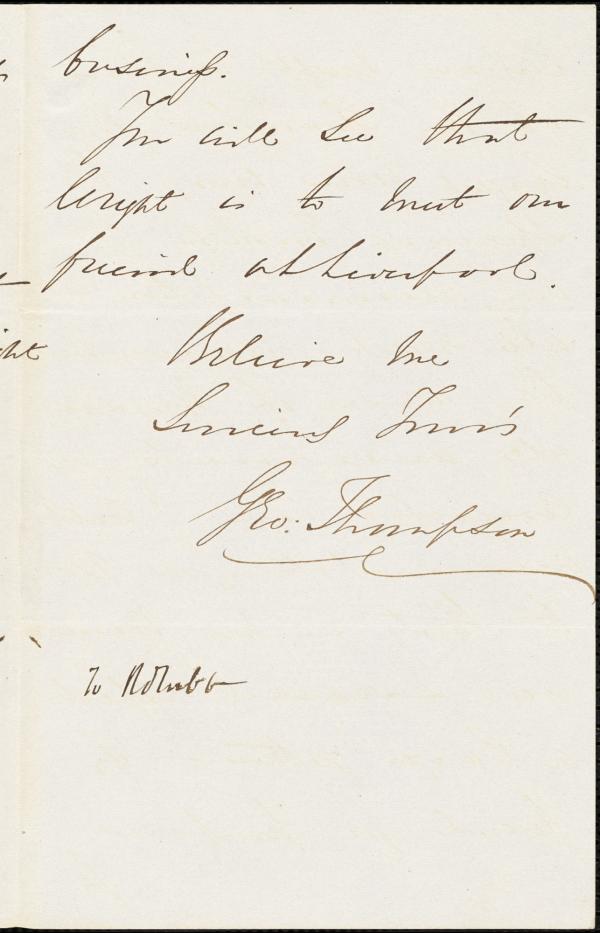 business.
You will see that
Wright is to meet our
friend at Liverpool.
Believe Me
Sincerely Your's
Geo: Thompson
To R D Webb